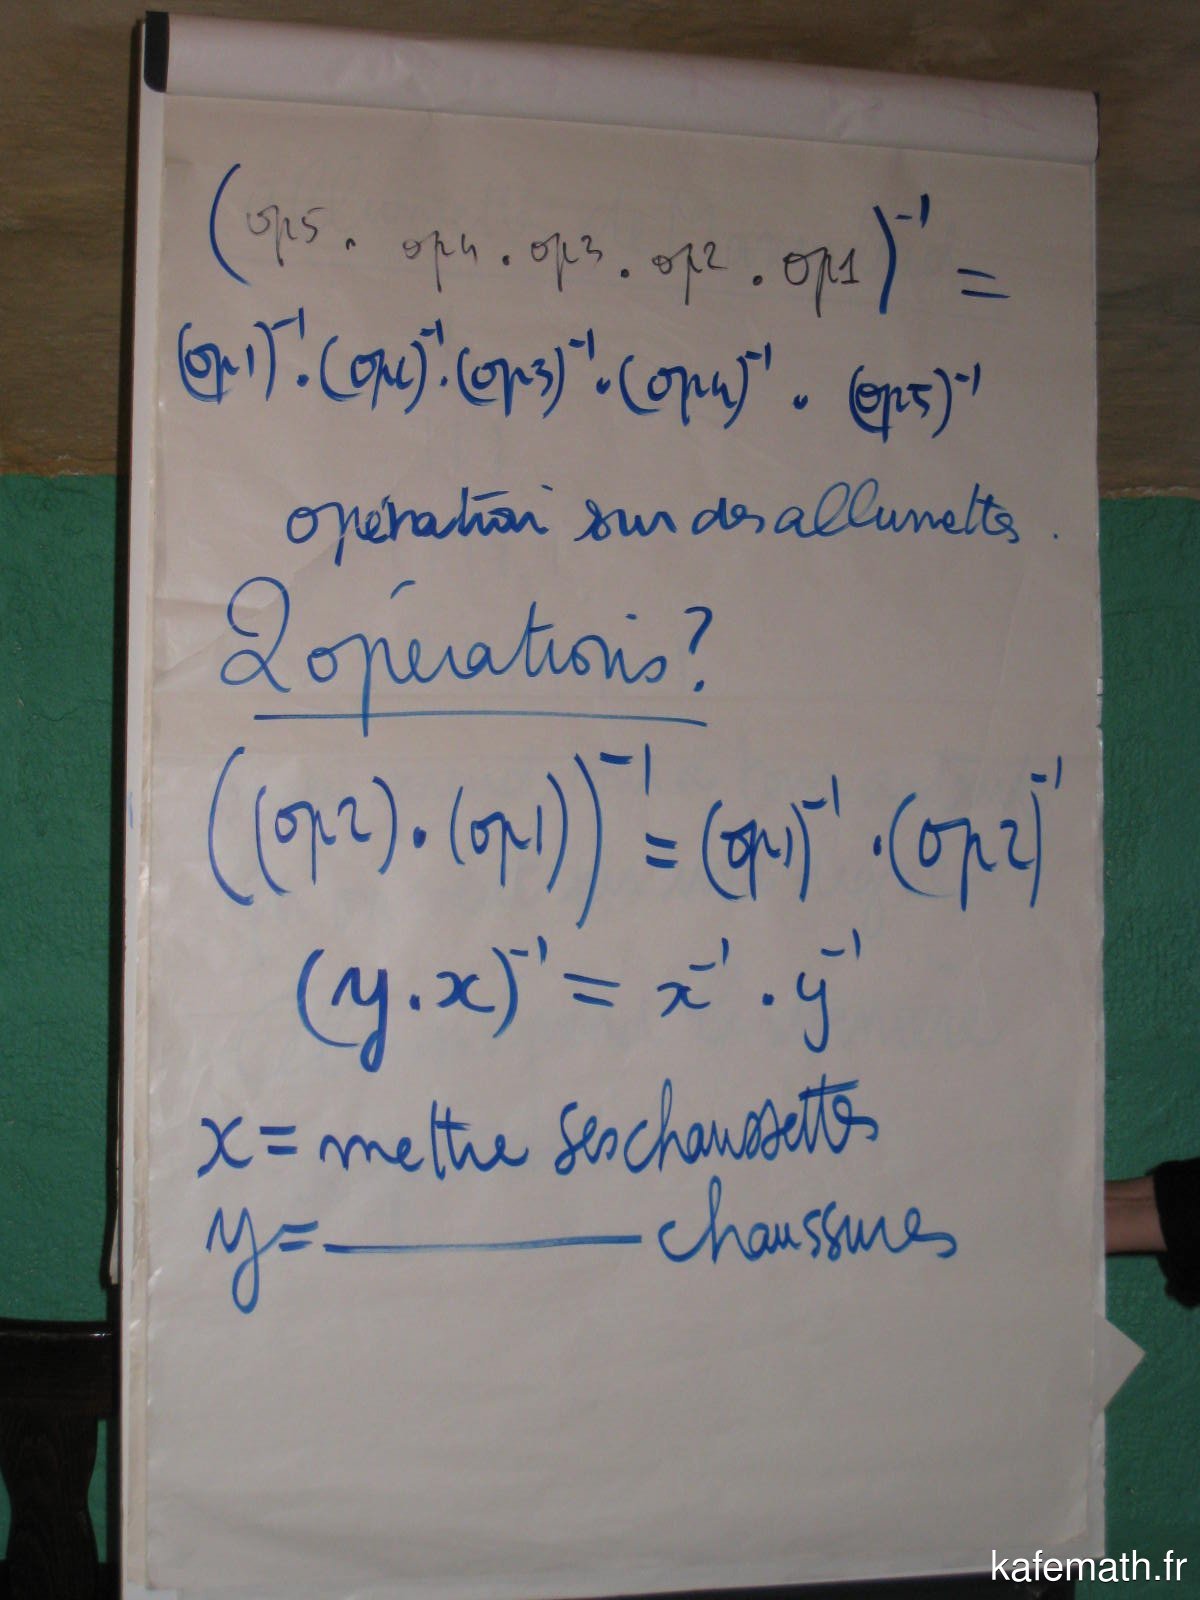 (op5 . op4 . op3 . op2 . op1)⁻¹ =
(op1)⁻¹ . (op2)⁻¹ . (op3)⁻¹ . (op4)⁻¹ . (op5)⁻¹
opération sur des allumettes.
2 opérations ?
((op2) . (op1))⁻¹ = (op1)⁻¹ . (op2)⁻¹
(y . x)⁻¹ = x⁻¹ . y⁻¹
x = mettre ses chaussettes
y = ———— chaussures
kafemath.fr